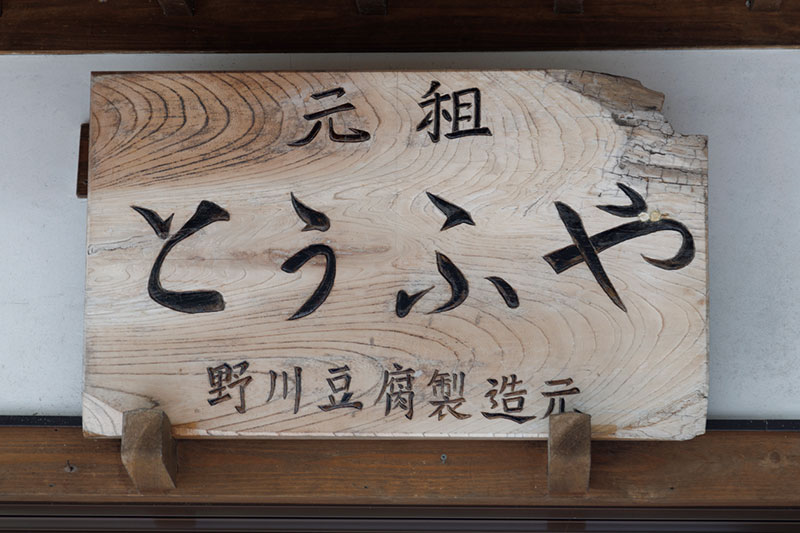 元祖
とうふや
野川豆腐製造元